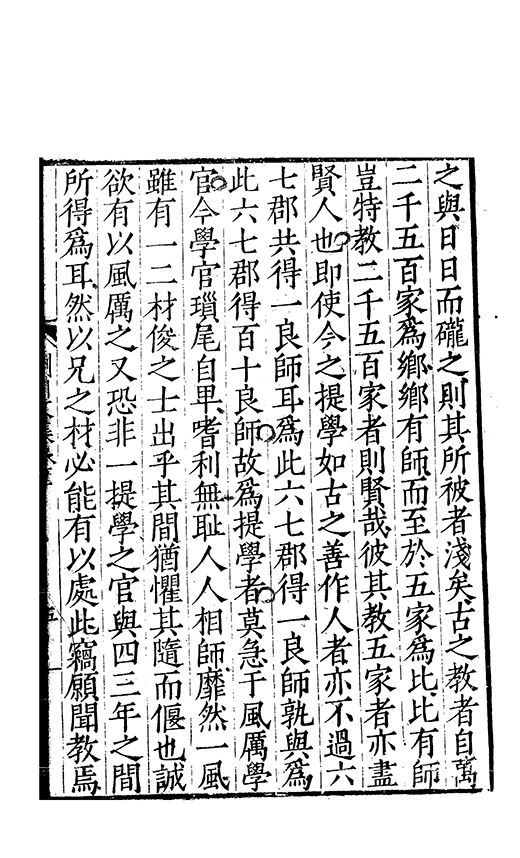 之與日日而礲之則其所被者淺矣古之教者自萬
二千五百家爲鄉鄉有師而至於五家爲比比有師
豈特教二千五百家者則賢哉彼其教五家者亦盡
賢人也即使今之提學如古之善作人者亦不過六
七郡共得一良師耳爲此六七郡得一良師孰與爲
此六七郡得百十良師故爲提學者莫急于風厲學
官今學官瑣尾自卑嗜利無耻人人相師靡然一風
雖有一二材俊之士出乎其間猶懼其隨而偃也誠
欲有以風厲之又恐非一提學之官與四三年之間
所得爲耳然以兄之材必能有以處此竊願聞教焉
五